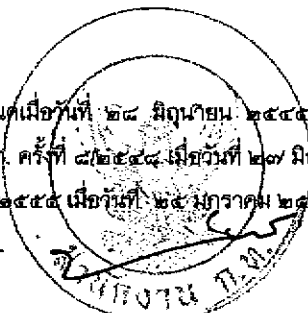 เมื่อวันที่ ๒๘ มิถุนายน ๒๕๔๕
ครั้งที่ ๘/๒๕๔๘ เมื่อวันที่ ๒๗
๒๕๕๕ เมื่อวันที่ ๒๕ มกราคม
สำนักงาน ก.ท.